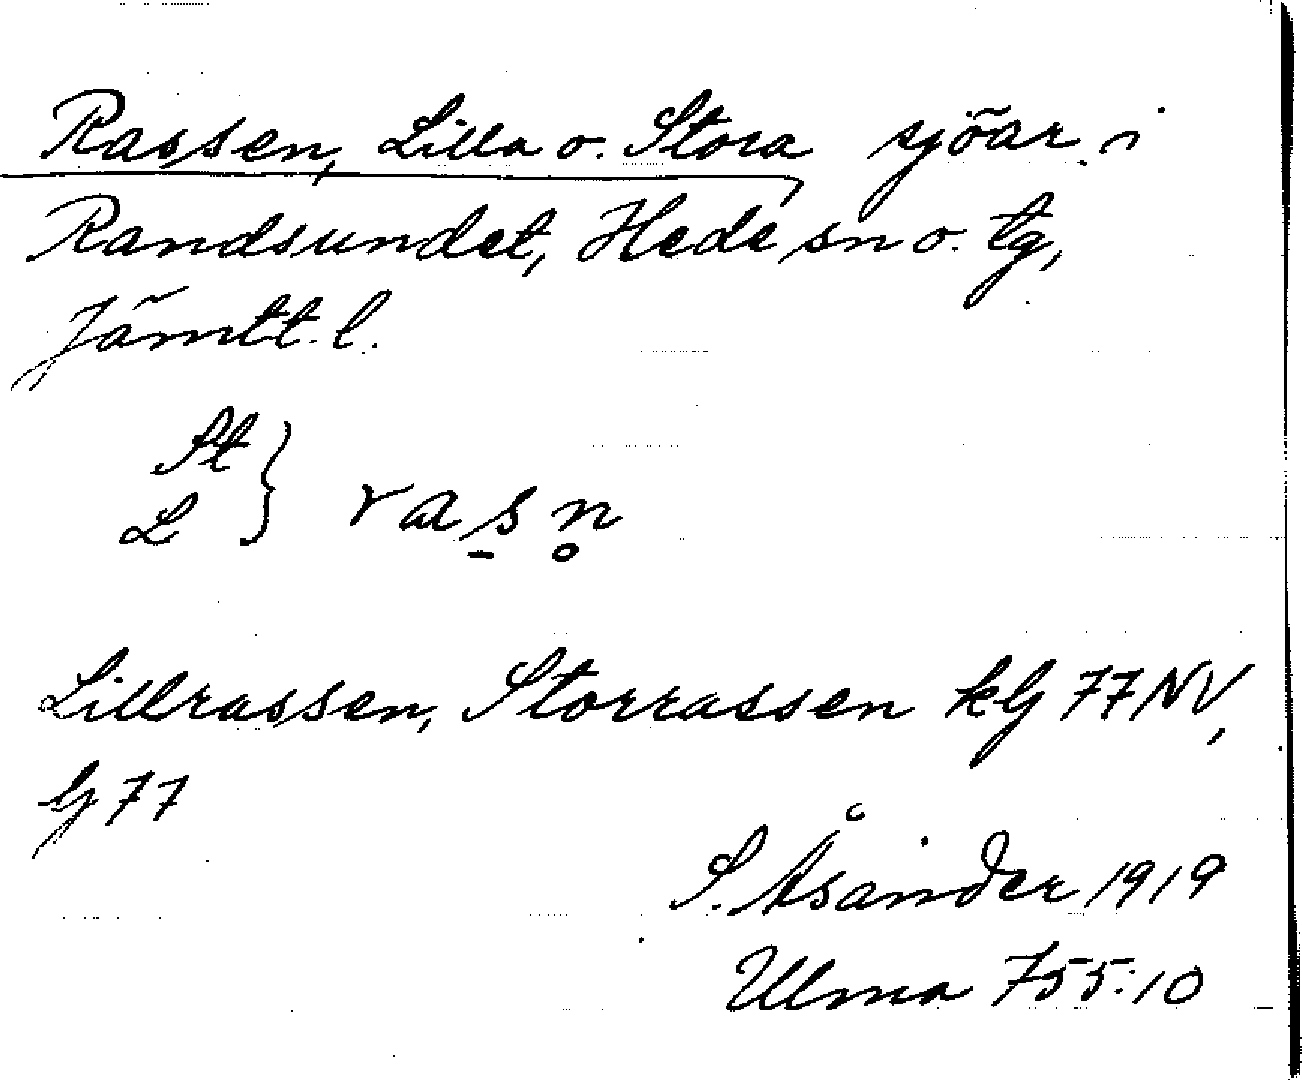 Rassen, Lilla o. Stora sjöar i
Randsundet, Hede sn o. tg,
Jämtt. l.
St
L } ra s̱ n̥
Lillrassen, Storrassen klg 77 NV,
Lg 77
S. Åsander 1919
Ulma 755:10